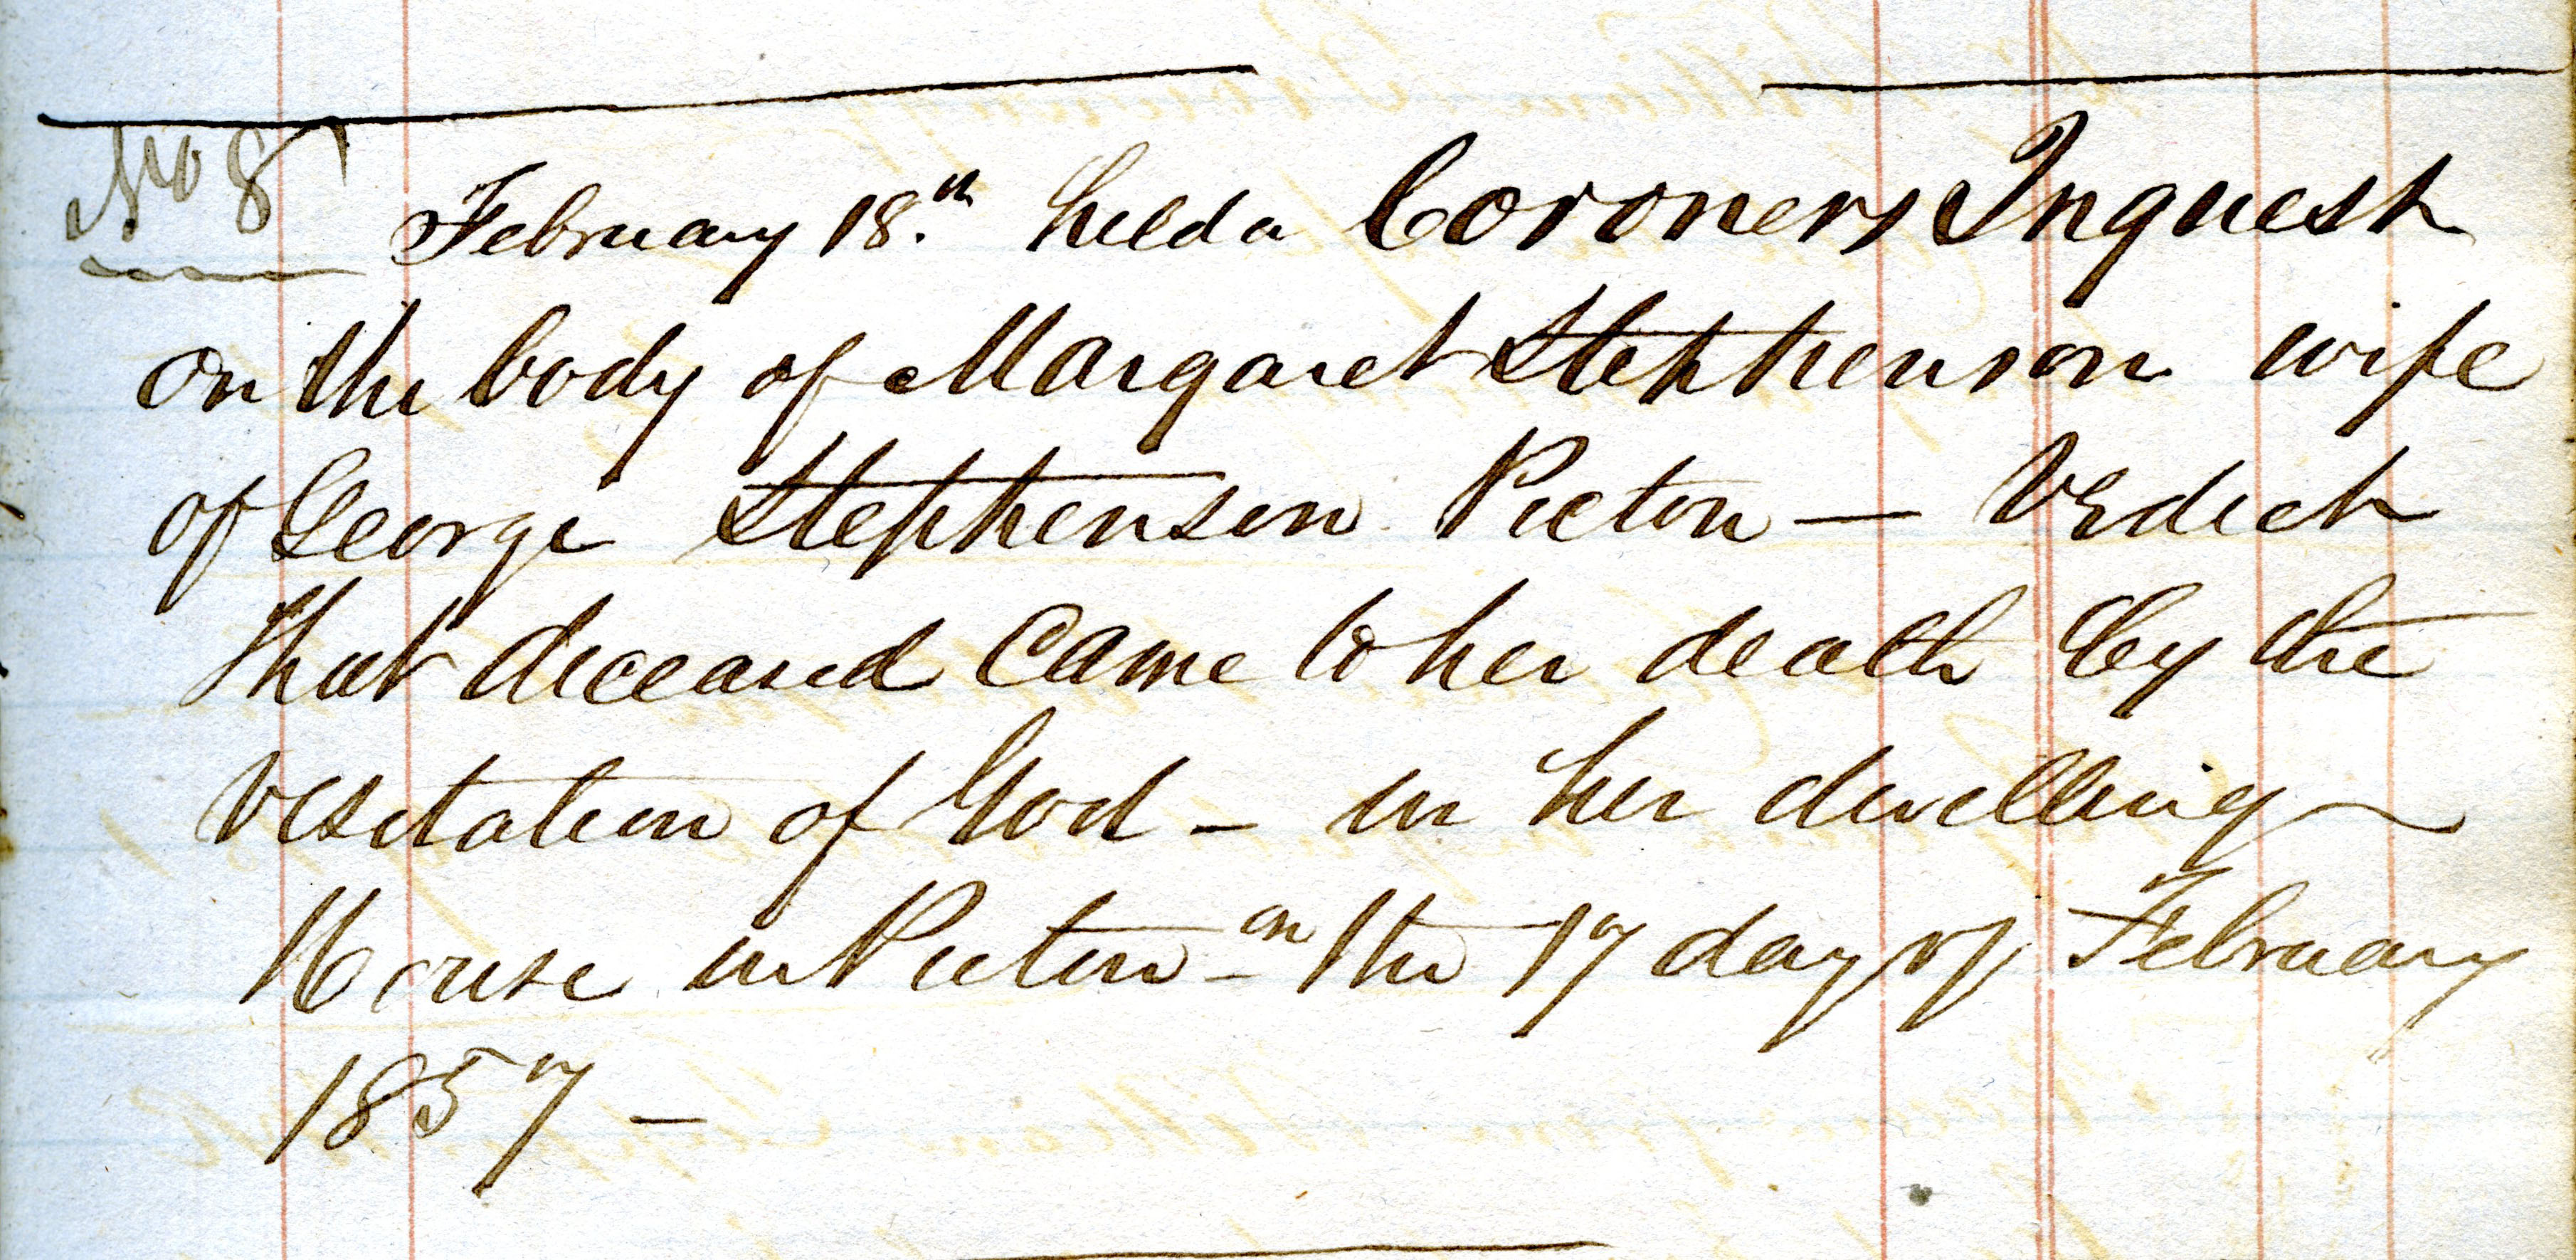 No 8
February 18.th held a Coroners Inquest
on the body of Margaret Stephenson wife
of George Stephenson Picton — Verdict
that deceased Came to her death by the
visitation of God - in her dwelling
House in Picton - on the 17 day of February
1857 —